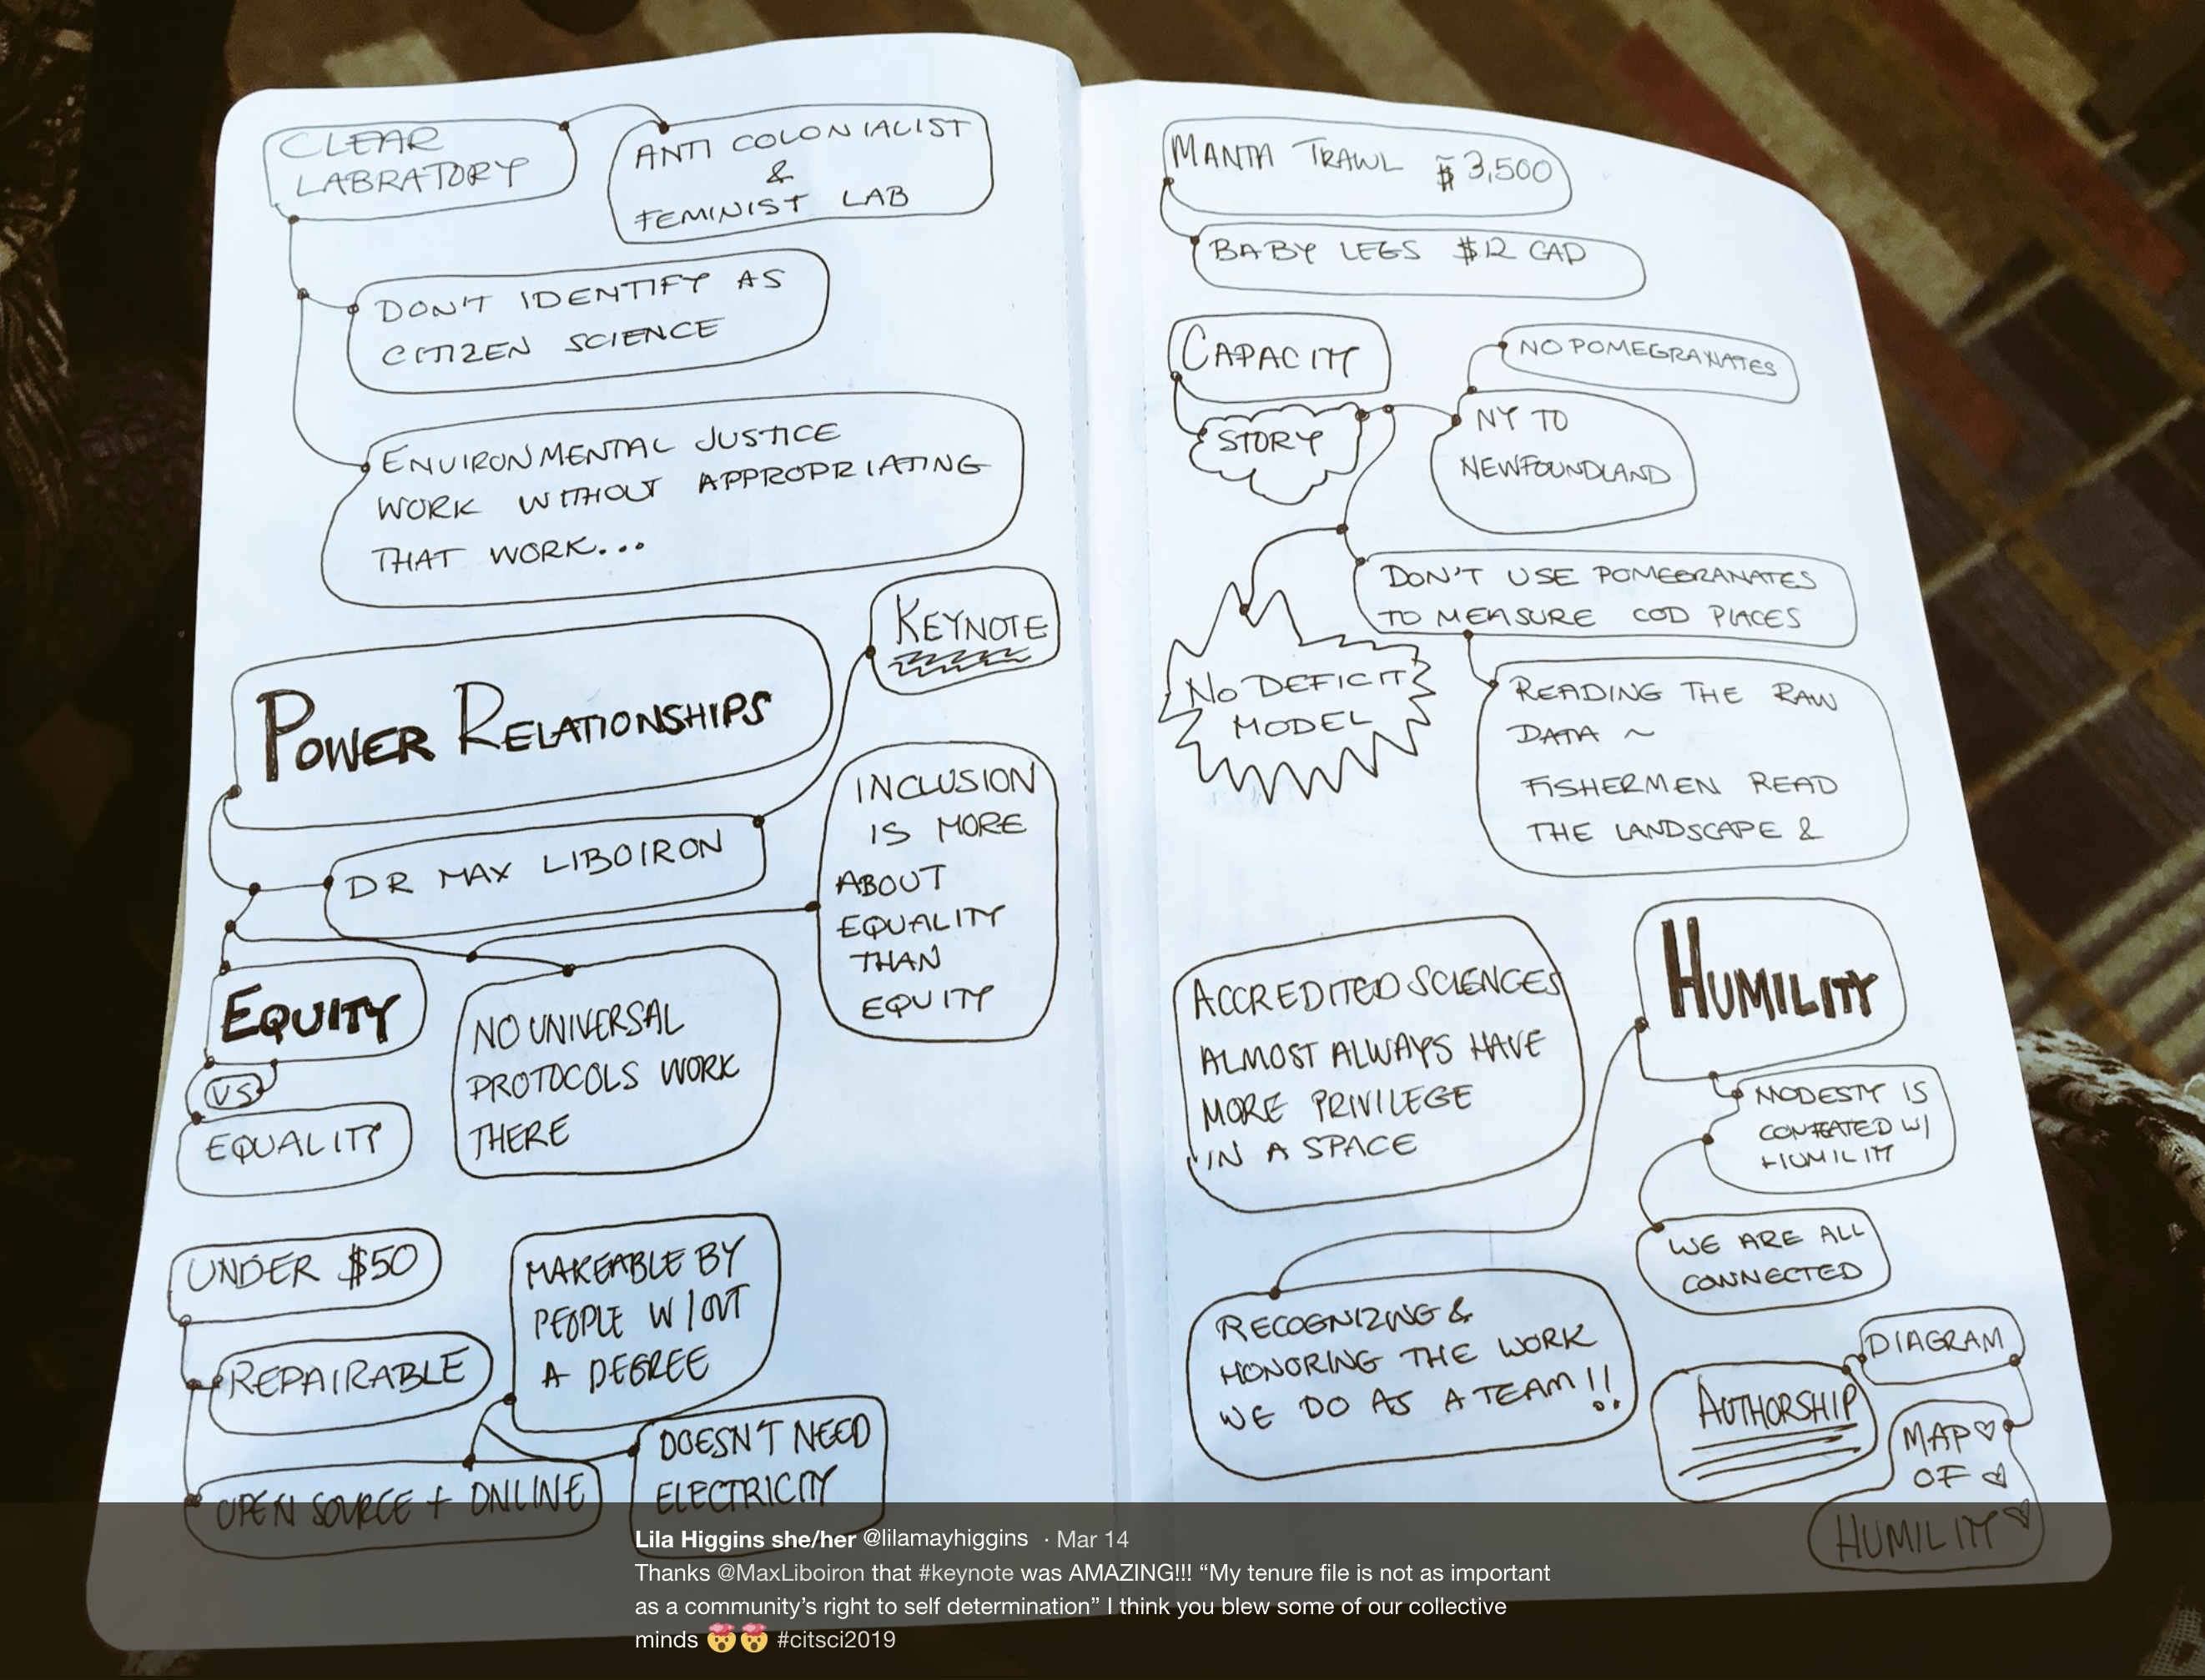 CLEAR
LABRATORY
ANTI COLONIALIST
&
FEMINIST LAB
DON'T IDENTIFY AS
CITIZEN SCIENCE
ENVIRONMENTAL JUSTICE
WORK WITHOUT APPROPRIATING
THAT WORK...
KEYNOTE
POWER RELATIONSHIPS
DR MAX LIBOIRON
INCLUSION
IS MORE
ABOUT
EQUALITY
THAN
EQUITY
EQUITY
VS
EQUALITY
NO UNIVERSAL
PROTOCOLS WORK
THERE
UNDER $50
REPAIRABLE
OPEN SOURCE + ONLINE
MAKEABLE BY
PEOPLE W/OUT
A DEGREE
DOESN'T NEED
ELECTRICITY
MANTA TRAWL $3,500
BABY LEGS $12 CAD
CAPACITY
STORY
NO POMEGRANATES
NY TO
NEWFOUNDLAND
DON'T USE POMEGRANATES
TO MEASURE COD PLACES
NO DEFICIT
MODEL
READING THE RAW
DATA ~
FISHERMEN READ
THE LANDSCAPE &
ACCREDITED SCIENCES
ALMOST ALWAYS HAVE
MORE PRIVILEGE
IN A SPACE
HUMILITY
MODESTY IS
CONFLATED W/
HUMILITY
WE ARE ALL
CONNECTED
RECOGNIZING &
HONORING THE WORK
WE DO AS A TEAM!!
DIAGRAM
AUTHORSHIP
MAP♡
OF ♡
HUMILITY ♡
Lila Higgins she/her @lilamayhiggins · Mar 14
Thanks @MaxLiboiron that #keynote was AMAZING!!! “My tenure file is not as important
as a community’s right to self determination” I think you blew some of our collective
minds 🤯🤯 #citsci2019